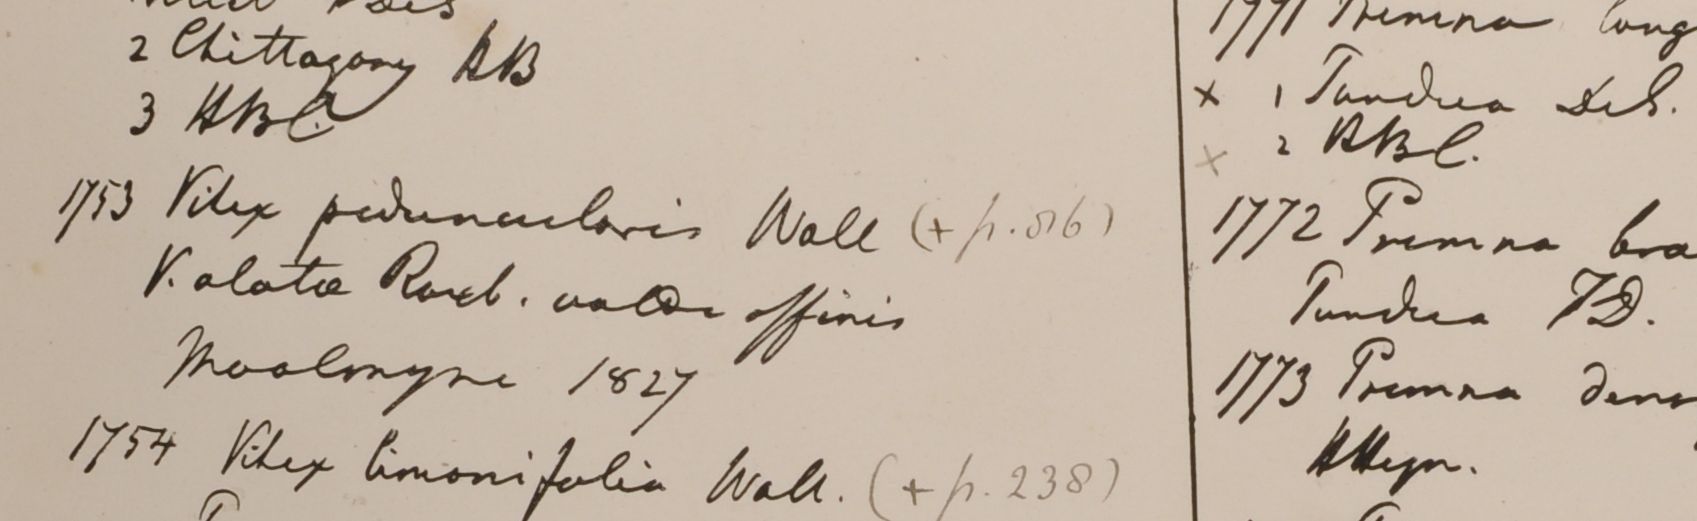 2 Chittagong HB
3 HBC.
1753 Vitex peduncularis Wall (+ p. 86)
V. alatae Roxb. valde affinis
Moalmyne 1827
1754 Vitex limonifolia Wall. (+ p. 238)
1771 Premna long
x 1 Tundua Seb.
x 2 HBC.
1772 Premna bra
Tundua FD.
1773 Premna dens
HHeyn.